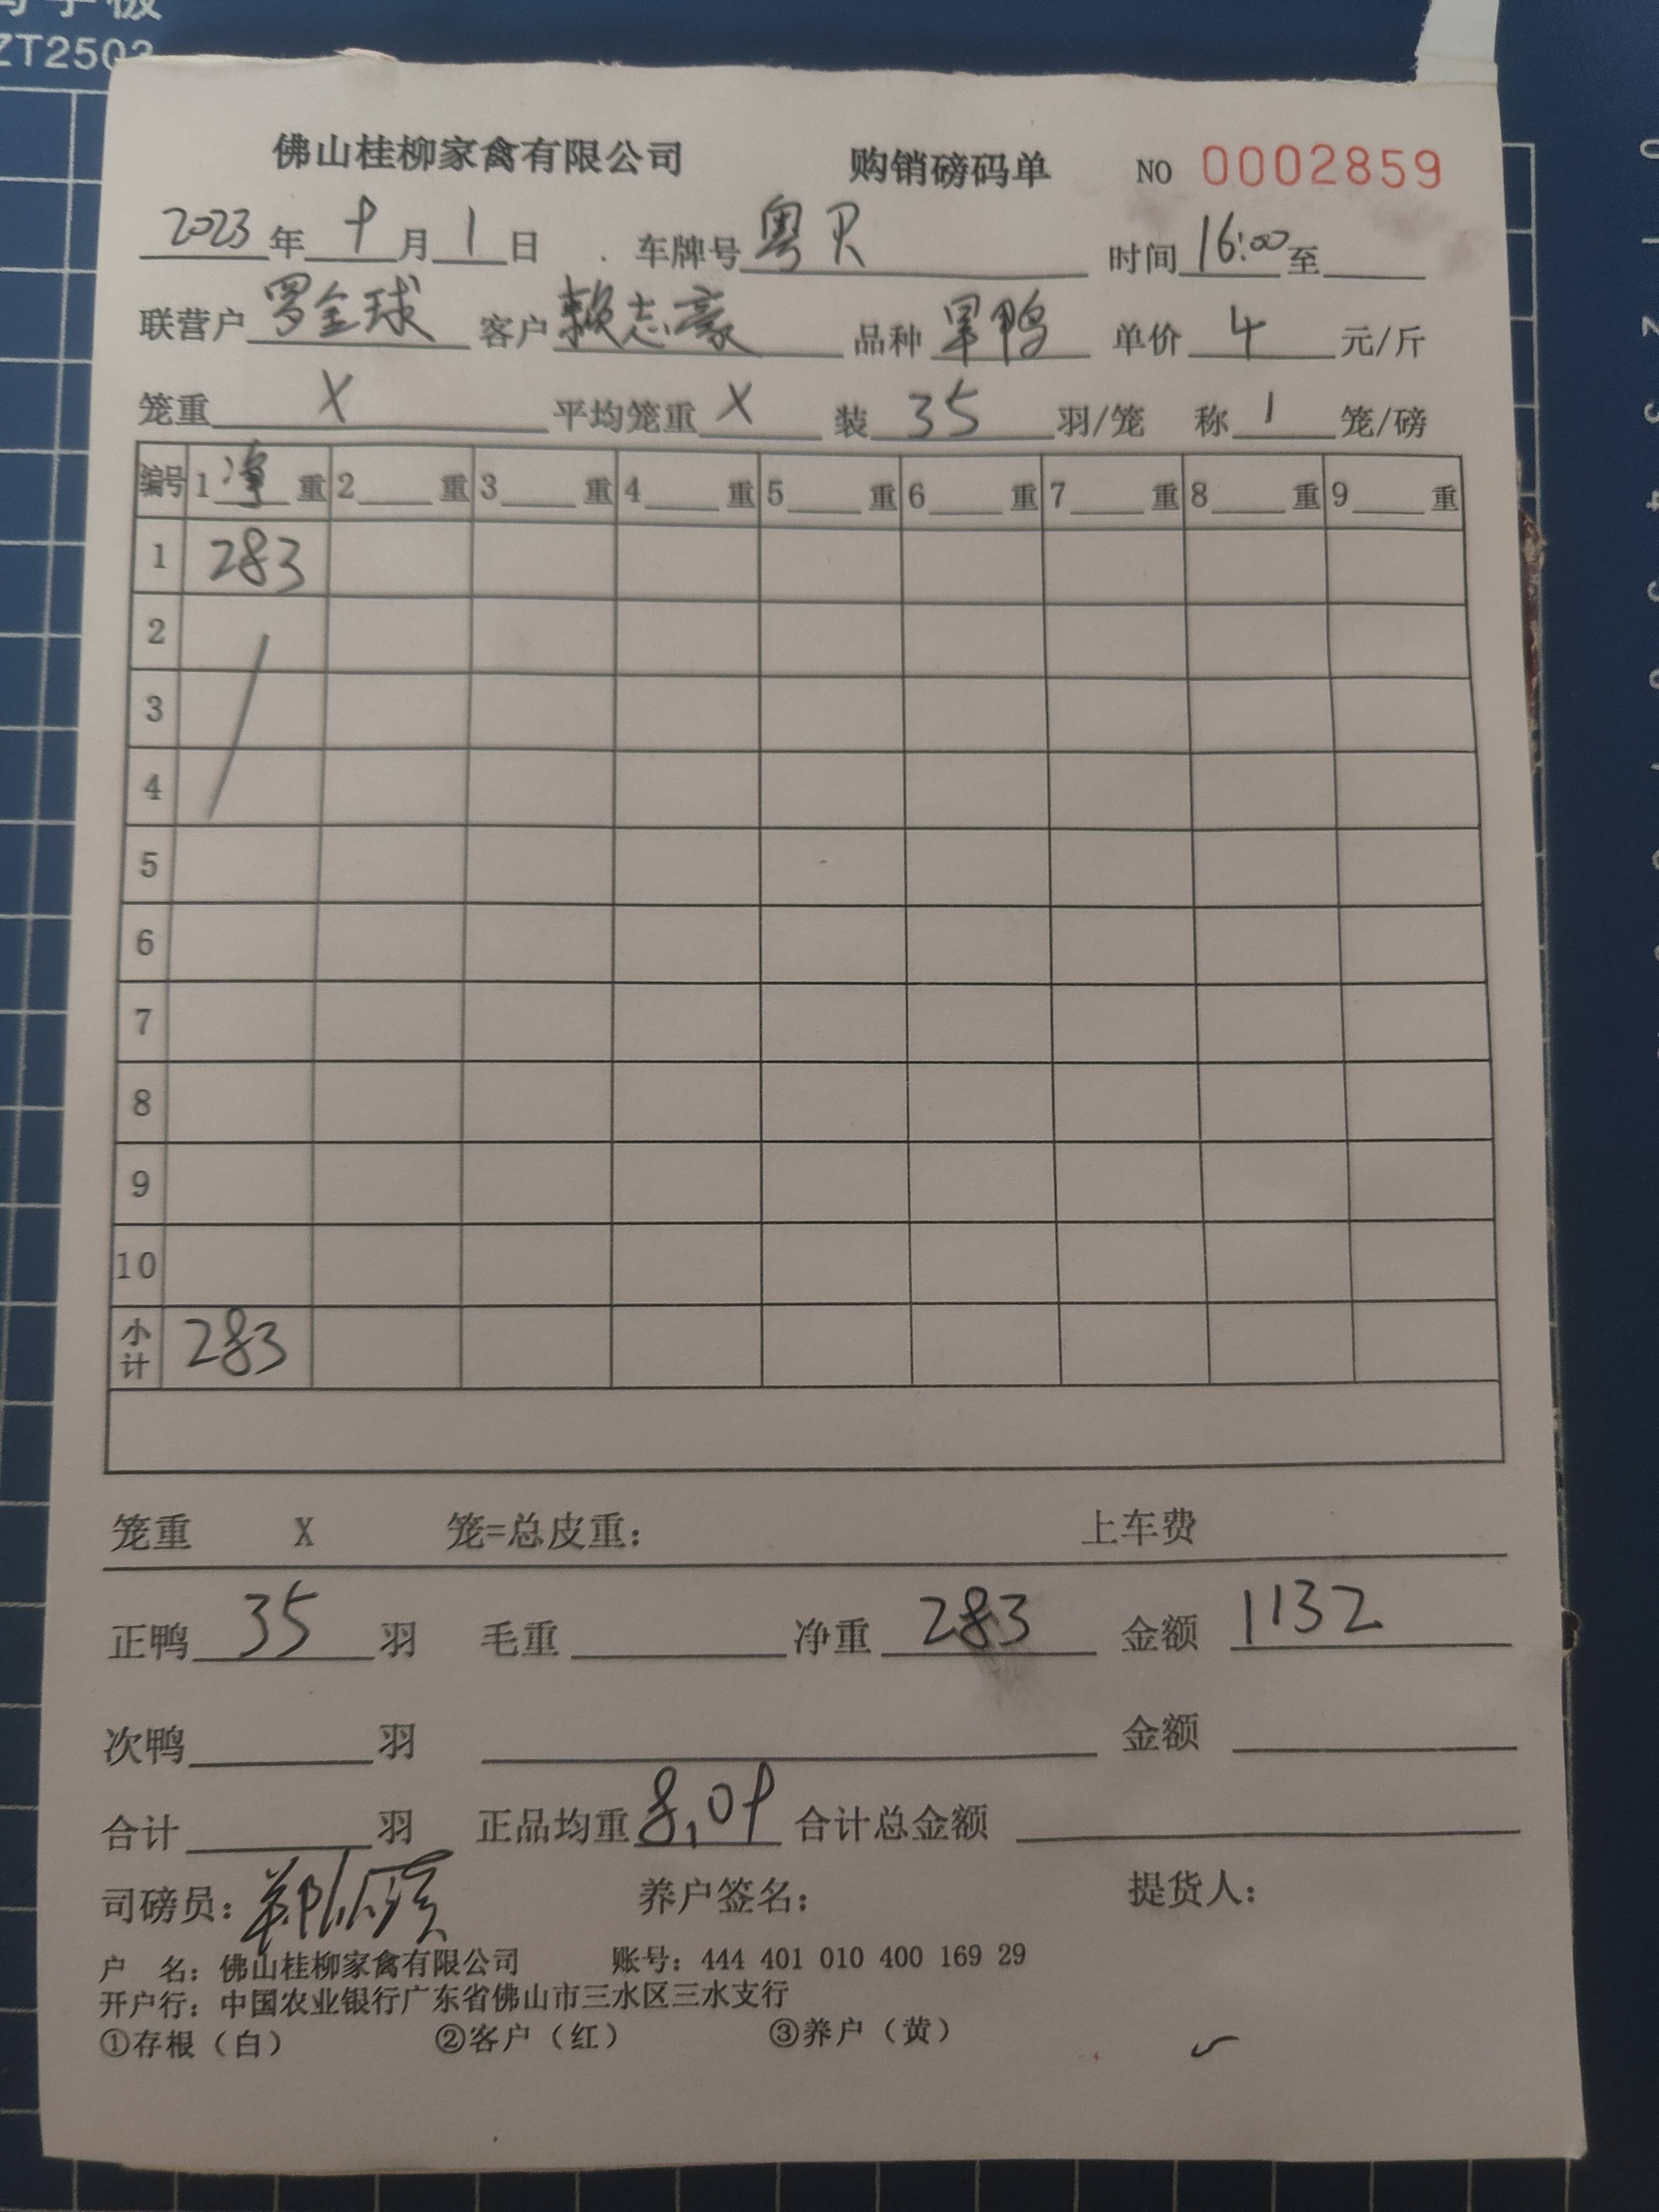 写字板
ZT2503
佛山桂柳家禽有限公司 购销磅码单 NO 0002859
2023年 十月1日 车牌号 粤 时间16:00至
联营户 罗金球 客户 赖志豪 品种 旱鸭 单价 4 元/斤
笼重 X 平均笼重 X 装 35 羽/笼 称 1 笼/磅
编号 1净重 2 重 3 重 4 重 5 重 6 重 7 重 8 重 9 重
1 283
2
3
4
5
6
7
8
9
10
小计 283
笼重 X 笼=总皮重: 上车费
正鸭 35 羽 毛重 净重 283 金额 1132
次鸭 羽 金额
合计 羽 正品均重 8.09 合计总金额
司磅员: 养户签名: 提货人:
户 名: 佛山桂柳家禽有限公司 账号: 444 401 010 400 169 29
开户行: 中国农业银行广东省佛山市三水区三水支行
①存根（白） ②客户（红） ③养户（黄）